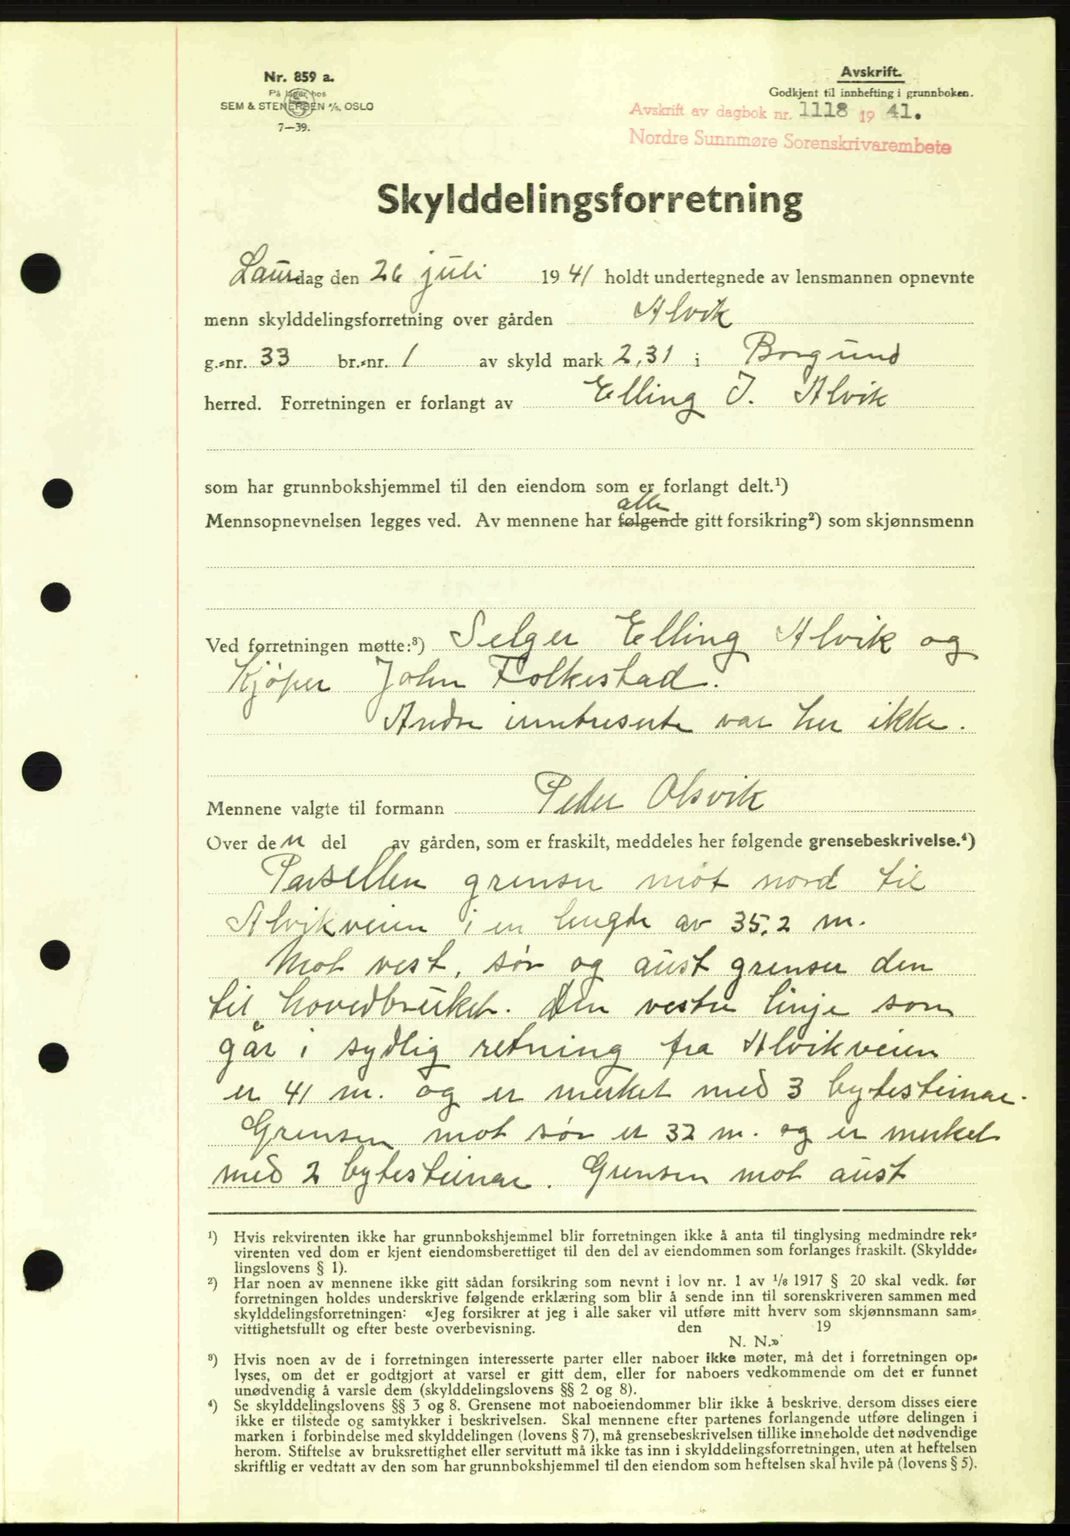 Nr. 859 a.
På lager hos
SEM & STENERSEN A/S, OSLO
7—39.
Avskrift.
Godkjent til innhefting i grunnboken.
Avskrift av dagbok nr. 1118 1941.
Nordre Sunnmøre Sorenskrivarembete
Skylddelingsforretning
Laurdag den 26 juli 1941 holdt undertegnede av lensmannen opnevnte
menn skylddelingsforretning over gården Alvik
g.-nr. 33 br.-nr. 1 av skyld mark 2,31 i Borgund
herred. Forretningen er forlangt av Elling J. Alvik
som har grunnbokshjemmel til den eiendom som er forlangt delt.¹)
alle
Mennsopnevnelsen legges ved. Av mennene har følgende gitt forsikring²) som skjønnsmenn
Ved forretningen møtte:³) Selger Elling Alvik og
Kjøper John Folkestad.
Andre inntreserte var her ikke.
Mennene valgte til formann Peder Olsvik
Over den del av gården, som er fraskilt, meddeles her følgende grensebeskrivelse.⁴)
Parsellen grenser mot nord til
Alvikveien i en lengde av 35,2 m.
Mot vest, sør og aust grenser den
til hovedbruket. Den vestre linje som
går i sydlig retning fra Alvikveien
er 41 m. og er merket med 3 bytesteinar.
Grensen mot sør er 32 m. og er merket
med 2 bytesteinar. Grensen mot aust
¹) Hvis rekvirenten ikke har grunnbokshjemmel blir forretningen ikke å anta til tinglysing medmindre rek-
virenten ved dom er kjent eiendomsberettiget til den del av eiendommen som forlanges fraskilt. (Skyldde-
lingslovens § 1).
²) Har noen av mennene ikke gitt sådan forsikring som nevnt i lov nr. 1 av 1/8 1917 § 20 skal vedk. før
forretningen holdes underskrive følgende erklæring som blir å sende inn til sorenskriveren sammen med
skylddelingsforretningen: «Jeg forsikrer at jeg i alle saker vil utføre mitt hverv som skjønnsmann sam-
vittighetsfullt og efter beste overbevisning. den 19
N. N.»
³) Hvis noen av de i forretningen interesserte parter eller naboer ikke møter, må det i forretningen op-
lyses, om det er godtgjort at varsel er gitt dem, eller for naboers vedkommende om det er funnet
unødvendig å varsle dem (skylddelingslovens §§ 2 og 8).
⁴) Se skylddelingslovens §§ 3 og 8. Grensene mot naboeiendommer blir ikke å beskrive, dersom disses eiere
ikke er tilstede og samtykker i beskrivelsen. Skal mennene efter partenes forlangende utføre delingen i
marken i forbindelse med skylddelingen (lovens § 7), må grensebeskrivelsen tillike inneholde det nødvendige
herom. Stiftelse av bruksrettighet eller servitutt må ikke tas inn i skylddelingsforretningen, uten at heftelsen
skriftlig er vedtatt av den som har grunnbokshjemmel til den eiendom som heftelsen skal hvile på (lovens § 5).